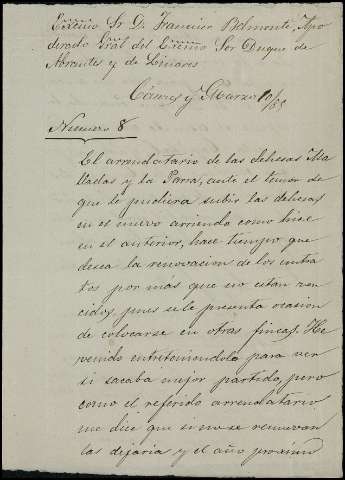 Exmo Sr D. Francisco Belmonte, Apo
derado Gral del Exmo Sor Duque de
Abrantes y de Linares
Cáceres y Marzo 10/85
Numero 8
El arrendatario de las dehesas Ma
lladas y la Parra, ante el temor de
que le pudiera subir las dehesas
en el nuevo arriendo como hice
en el anterior, hace tiempo que
desea la renovacion de los contra
tos por más que no estan ven
cidos, pues se le presenta ocasion
de colocarse en otras fincas. He
venido entreteniendolo para ver
si sacaba mejor partido, pero
como el referido arrendatario
me dice que si no se renuevan
las dejaria y el año proximo